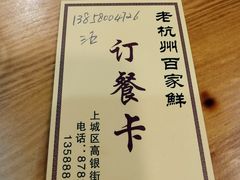 13858004726
老杭州百家鮮
订餐卡
上城区高银街
电话:878
135888